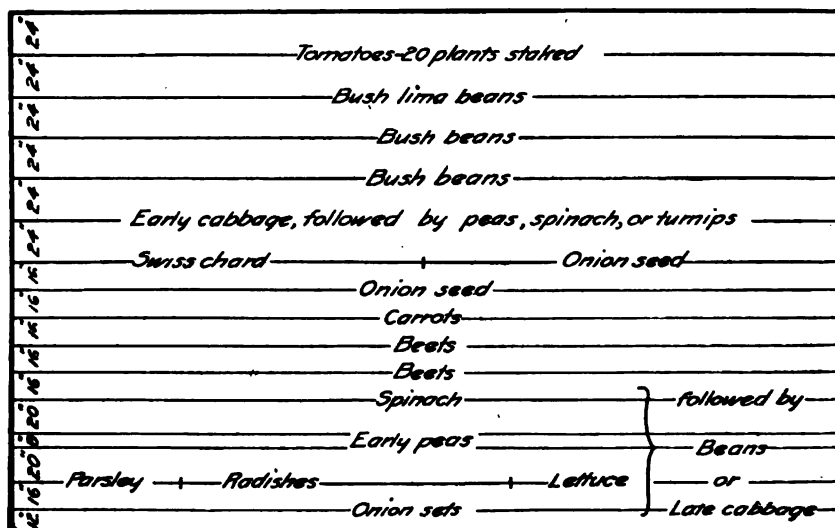 24"
Tomatoes-20 plants staked
24"
Bush lima beans
24"
Bush beans
24"
Bush beans
24"
Early cabbage, followed by peas, spinach, or turnips
24"
Swiss chard Onion seed
16"
Onion seed
16"
Carrots
16"
Beets
16"
Beets
16"
Spinach followed by
20"
Early peas Beans
20"
Parsley Radishes Lettuce or
16"
Onion sets Late cabbage
12"